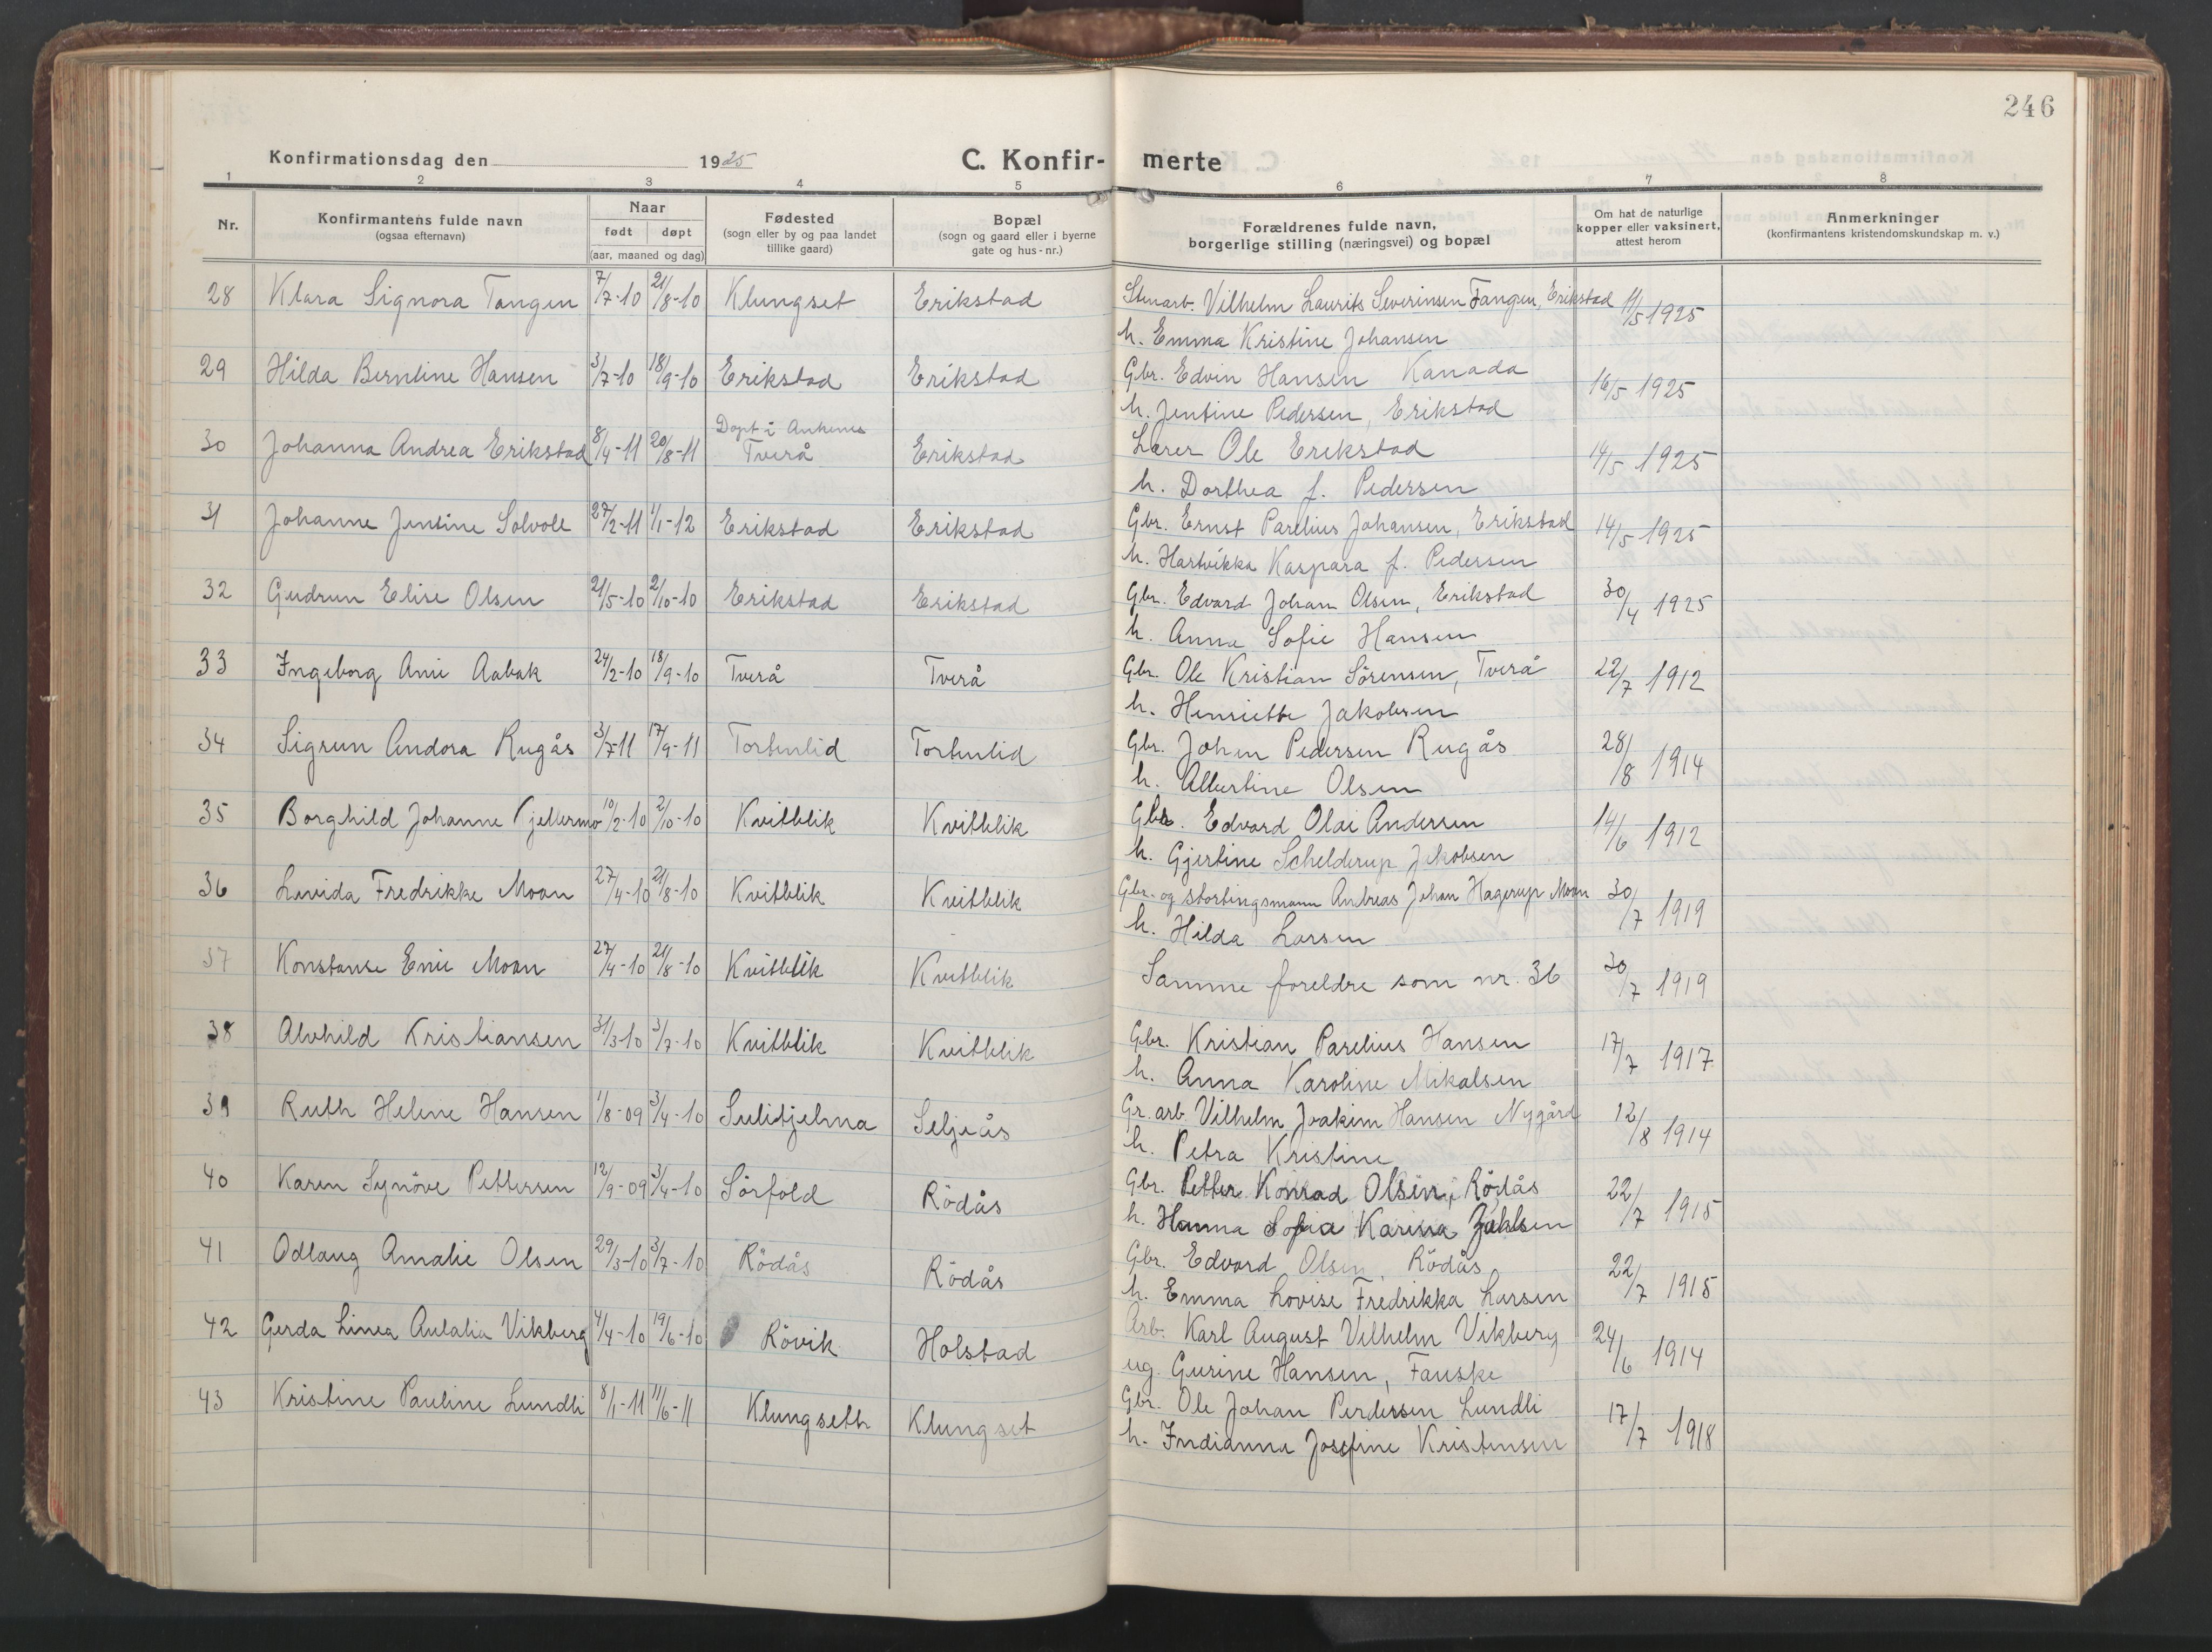 246
Konfirmationsdag den 1925 C. Konfir- merte
1 2 3 4 5 6 7 8
Nr. Konfirmantens fulde navn (ogsaa efternavn) Naar født døpt (aar, maaned og dag) Fødested (sogn eller by og paa landet tillike gaard) Bopæl (sogn og gaard eller i byerne gate og hus-nr.) Forældrenes fulde navn, borgerlige stilling (næringsvei) og bopæl Om hat de naturlige kopper eller vaksinert, attest herom Anmerkninger (konfirmantens kristendomskundskap m. v.)
28 Klara Signora Tangen 7/7-10 21/8-10 Klungset Erikstad Stenarb. Vilhelm Laurits Severinsen Tangen, Erikstad 11/5 1925
h. Emma Kristine Johansen
29 Hilda Berntine Hansen 3/7-10 18/9-10 Erikstad Erikstad Gbr. Edvin Hansen Kanada 16/5 1925
h. Jentine Pedersen, Erikstad
Døpt i Ankenes
30 Johanna Andrea Erikstad 8/4-11 20/8-11 Tverå Erikstad Lærer Ole Erikstad 14/5 1925
h. Dorthea f. Pedersen
31 Johanne Jentine Solvoll 27/2-11 1/1-12 Erikstad Erikstad Gbr. Ernst Parelius Johansen, Erikstad 14/5 1925
h. Hartvikka Kaspara f. Pedersen
32 Gudrun Elise Olsen 21/5-10 2/10-10 Erikstad Erikstad Gbr. Edvard Johan Olsen, Erikstad 30/4 1925
h. Anna Sofie Hansen
33 Ingeborg Ani Aabak 24/2-10 18/9-10 Tverå Tverå Gbr. Ole Kristian Sörensen, Tverå 22/7 1912
h. Henriette Jakobsen
34 Sigrun Andora Rugås 3/7-11 17/9-11 Tortenlid Tortenlid Gbr. Johan Pedersen Rugås 28/8 1914
h. Albertine Olsen
35 Borghild Johanne Kjellermo 10/2-10 2/10-10 Kvitblik Kvitblik Gbr. Edvard Olai Andersen 14/6 1912
h. Gjertine Schelderup Jakobsen
36 Luvida Fredrikke Moan 27/4-10 21/8-10 Kvitblik Kvitblik Gbr. og stortingsmann Andreas Johan Hagerup Moan 30/7 1919
h. Hilda Larsen
37 Konstanse Enie Moan 27/4-10 21/8-10 Kvitblik Kvitblik Samme foreldre som nr. 36 30/7 1919
38 Alvhild Kristiansen 31/3-10 3/7-10 Kvitblik Kvitblik Gbr. Kristian Parelius Hansen 17/7 1917
h. Anna Karoline Mikalsen
39 Ruth Helene Hansen 1/8-09 3/4-10 Sulitjelma Seljeås Gr. arb. Vilhelm Joakim Hansen Nygård 12/8 1914
h. Petra Kristine
40 Karen Synöve Pettersen 12/9-09 3/4-10 Sörfold Rödås Gbr. Petter Konrad Olsen, Rödås 22/7 1915
h. Hanna Sofia Karina
41 Odlaug Amalie Olsen 29/3-10 3/7-10 Rödås Rödås Gbr. Edvard Olsen, Rödås 22/7 1915
h. Emma Lovise Fredrikka Larsen
42 Gerda Linea Aulalia Vikberg 4/4-10 19/6-10 Rövik Holstad Arb. Karl August Vilhelm Vikberg 24/6 1914
ug. Gurine Hansen, Fauske
43 Kristine Pauline Lundli 8/1-11 11/6-11 Klungseth Klungset Gbr. Ole Johan Perdersen Lundli 17/7 1918
h. Indianna Josefine Kristensen